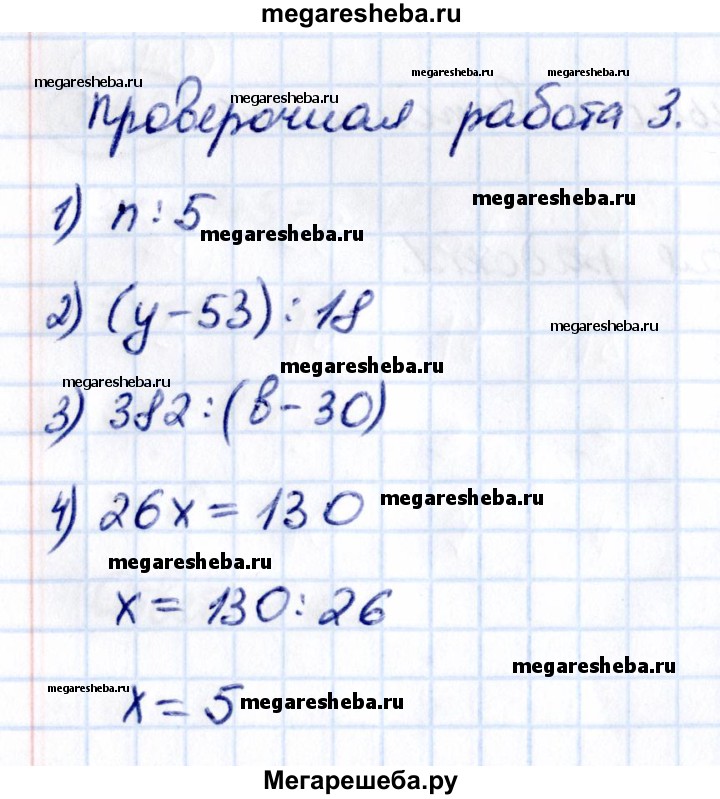 megaresheba.ru
megaresheba.ru megaresheba.ru
megaresheba.ru megaresheba.ru
Проверочная работа 3.
megaresheba.ru
1) n : 5
megaresheba.ru
2) (y - 53) : 18
megaresheba.ru
megaresheba.ru
megaresheba.ru
3) 382 : (в - 30)
4) 26x = 130
megaresheba.ru
megaresheba.ru
x = 130 : 26
megaresheba.ru
megaresheba.ru
x = 5
megaresheba.ru
Мегарешеба.ру